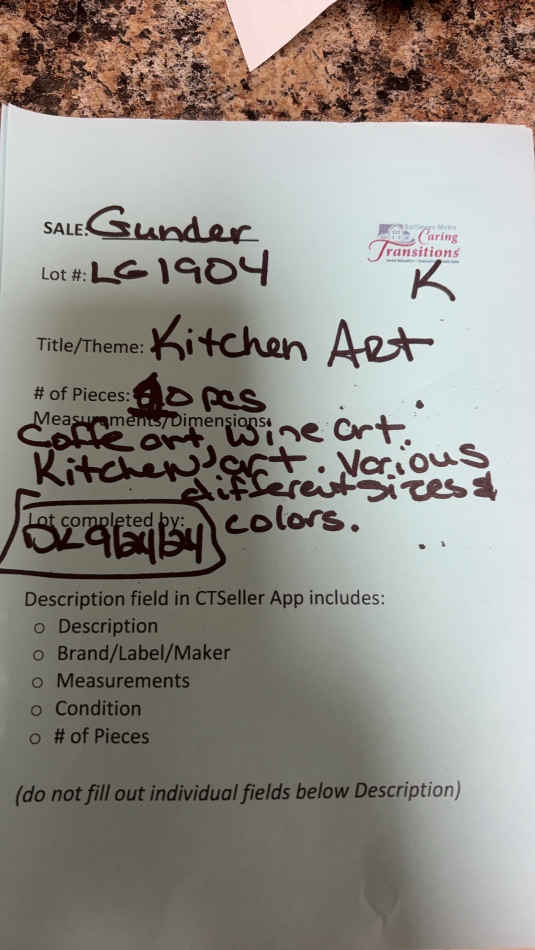 SALE: Gunder
Caring
Transitions
Lot #: LG1904
K
Title/Theme: Kitchen Art
# of Pieces: 10 pcs
Measurements/Dimensions:
Coffe art, Wine art.
Kitchen art. Various
different sizes &
colors.
Lot completed by:
DL 9/24/24
Description field in CTSeller App includes:
o Description
o Brand/Label/Maker
o Measurements
o Condition
o # of Pieces
(do not fill out individual fields below Description)